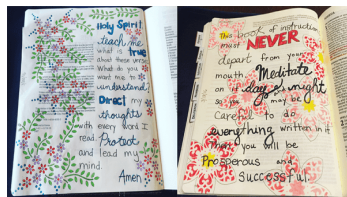 Holy Spirit,
teach me
what is true
about these verses.
What do you
want me to
understand?
Direct my
thoughts
with every word I
read. Protect
and lead my
mind.
Amen
This book of instruction
must NEVER
depart from your
mouth. Meditate
on it day & night
so you may be
careful to do
everything written in it
then you will be
Prosperous and
Successful